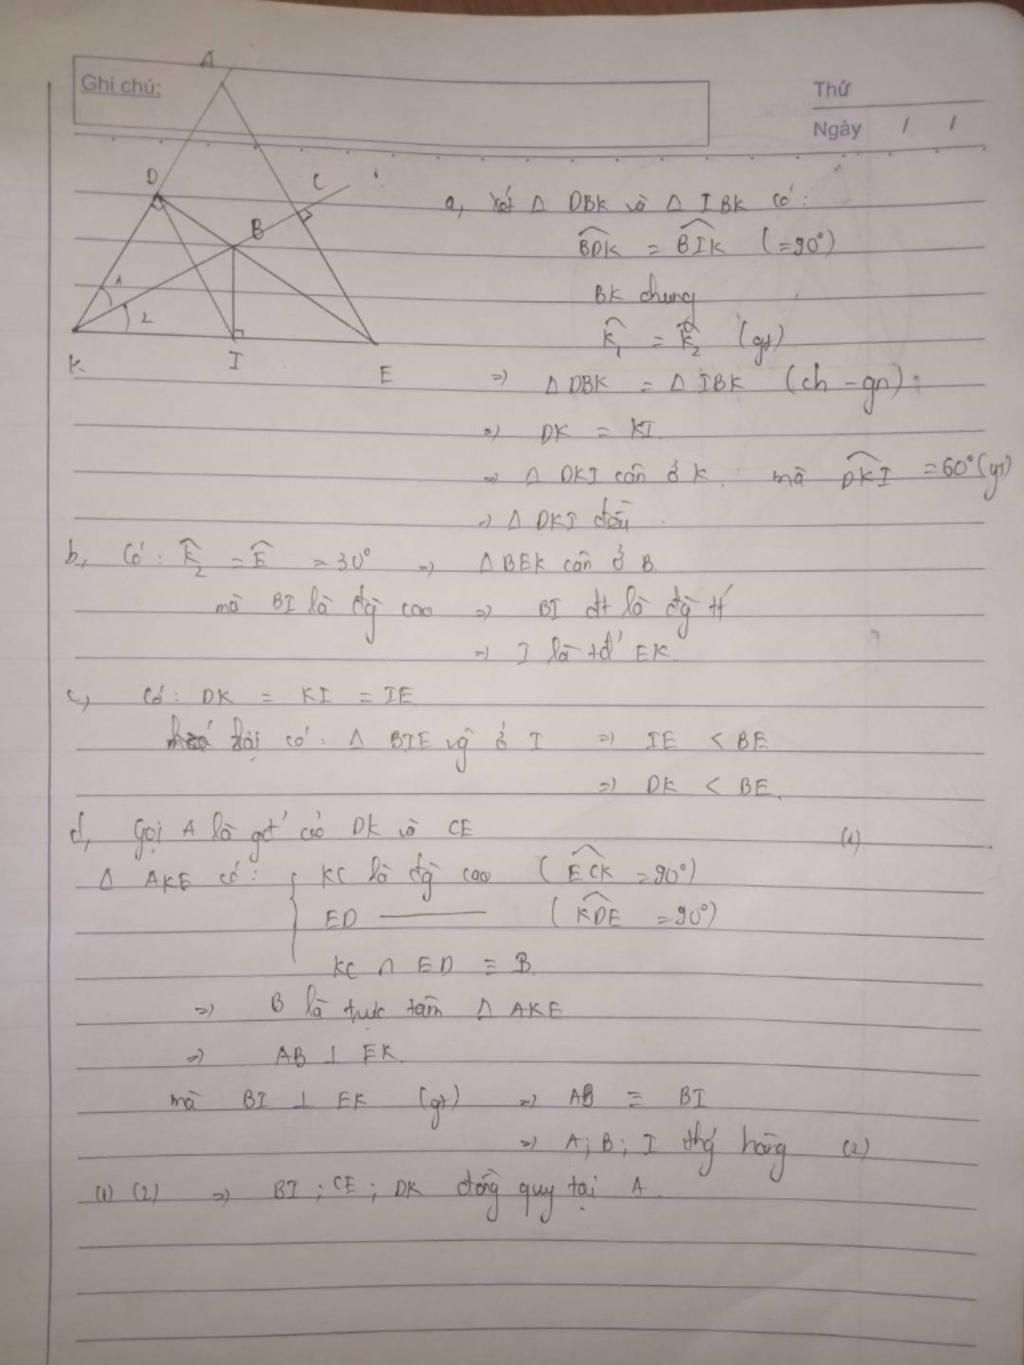 Ghi chú:
Thứ
Ngày / /
A
D
C
B
1
2
K
I
E
a, xét Δ DBK và Δ IBK có:
BDK = BIK (=90°)
BK chung
K1 = K2 (gt)
=> Δ DBK = Δ IBK (ch - gn)
=> DK = KI
=> Δ DKI cân ở K. mà DKI = 60° (gt)
=> Δ DKI đều
b, Có: K2 = E = 30° => Δ BEK cân ở B.
mà BI là đg cao => BI đt là đg tt
=> I là tđ' EK
c, Có: DK = KI = IE
lại có: Δ BIE vg ở I => IE < BE
=> DK < BE.
d, Gọi A là gđ' của DK và CE (1)
Δ AKE có: { KC là đg cao (ECK = 90°)
ED ——— (KDE = 90°)
KC ∩ ED ≡ B.
=> B là trực tâm Δ AKE
=> AB ⊥ EK.
mà BI ⊥ EK (gt) => AB ≡ BI
=> A; B; I thg hàng (2)
(1) (2) => BI; CE; DK đồng quy tại A.